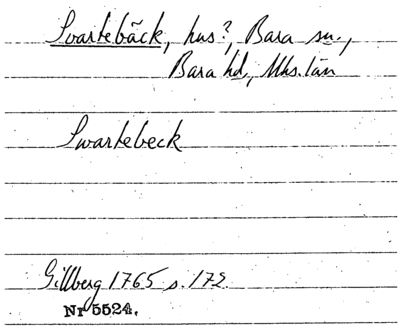 Svartebäck, hus?, Bara sn.,
Bara hd, Mhs. län
Swartebeck
Gillberg 1765 s. 172
Nr 5524.